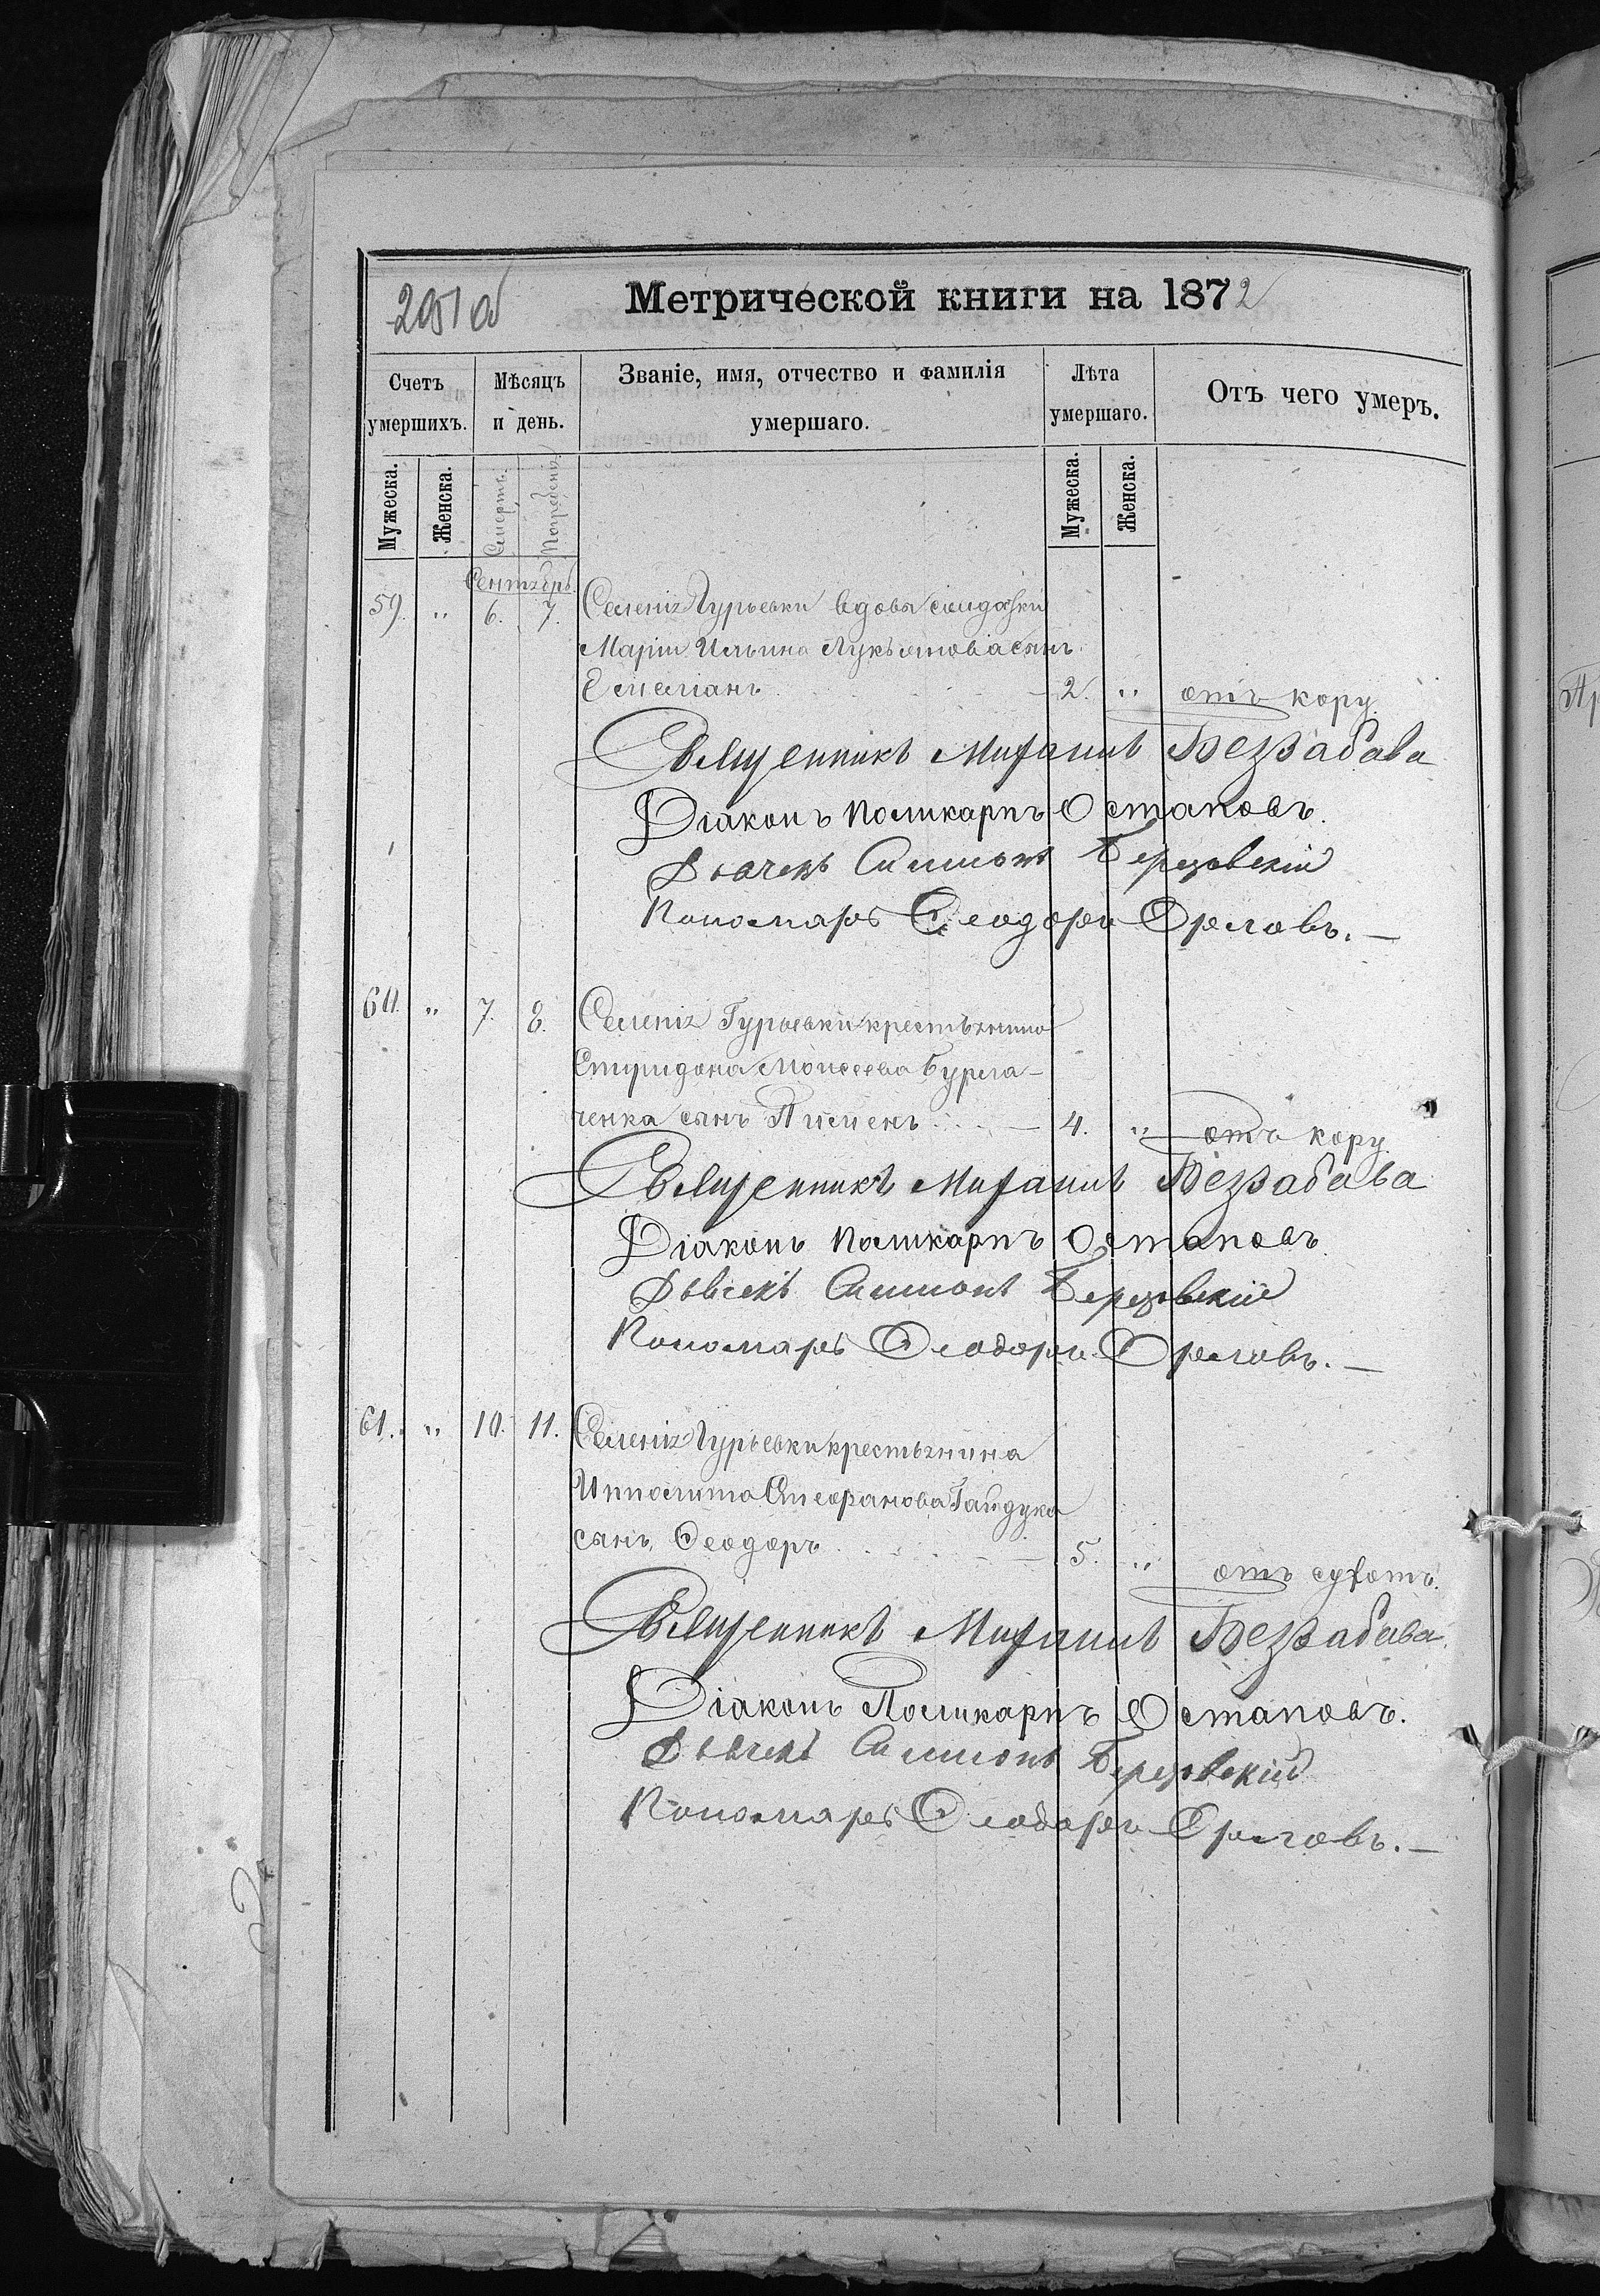 291 об
Метрической книги на 1872
Счетъ умершихъ.
Мѣсяцъ и день.
Званіе, имя, отчество и фамилія умершаго.
Лѣта умершаго.
Отъ чего умеръ.
Мужеска.
Женска.
Смерть.
Погребенія.
Мужеска.
Женска.
Сентябрь
59. " 6. 7. Селенія Гурьевки вдовы солдатки
Маріи Ильиной Лукьяновой сынъ
Емеліанъ 2. " отъ кору
Священникъ Михаилъ Беззабава
Діаконъ Поликарпъ Остаповъ.
Дьячекъ Симеонъ Березовскій
Пономарь Ѳеодоръ Орловъ.—
60. " 7. 8. Селенія Гурьевки крестьянина
Спиридона Моисеева Бурла-
ченка сынъ Пименъ 4. " отъ кору
Священникъ Михаилъ Беззабава
Діаконъ Поликарпъ Остаповъ
Дьячекъ Симеонъ Березовскій
Пономарь Ѳеодоръ Орловъ.—
61. " 10. 11. Селенія Гурьевки крестьянина
Ипполита Стефанова Гайдука
сынъ Ѳеодоръ 5. " отъ сухотъ.
Священникъ Михаилъ Беззабава.
Діаконъ Поликарпъ Остаповъ.
Дьячекъ Симеонъ Березовскій
Пономарь Ѳеодоръ Орловъ.—